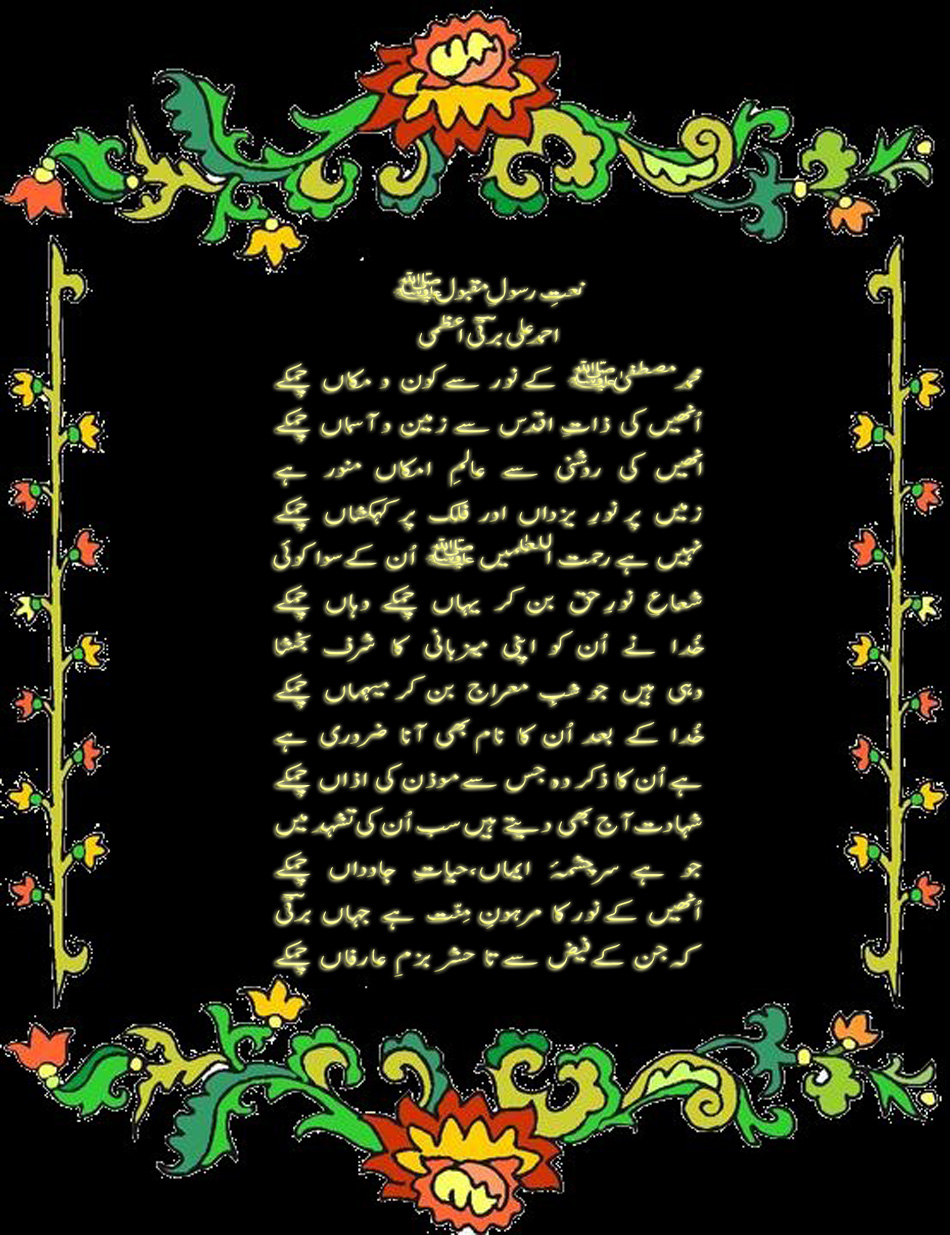 نعتِ رسولِ مقبولﷺ
احمد علی برقیؔ اعظمی
محمد مصطفیٰﷺ کے نور سے کون و مکاں چمکے
اُنھیں کی ذاتِ اقدس سے زمین و آسماں چمکے
اُنھیں کی روشنی سے عالمِ امکاں منور ہے
زمیں پر نورِ یزداں اور فلک پر کہکشاں چمکے
نہیں ہے رحمت اللعٰلمیںﷺ اُن کے سوا کوئی
شعاعِ نورِ حق بن کر یہاں چمکے وہاں چمکے
خُدا نے اُن کو اپنی میزبانی کا شرف بخشا
وہی ہیں جو شبِ معراج بن کر میہماں چمکے
خُدا کے بعد اُن کا نام بھی آنا ضروری ہے
ہے اُن کا ذکر وہ جس سے موذن کی اذاں چمکے
شہادت آج بھی دیتے ہیں سب اُن کی تشہد میں
جو ہے سرچشمۂ ایماں،حیاتِ جاوداں چمکے
اُنھیں کے نور کا مرہونِ مِنّت ہے جہاں برقیؔ
کہ جن کے فیض سے تا حشر بزمِ عارفاں چمکے